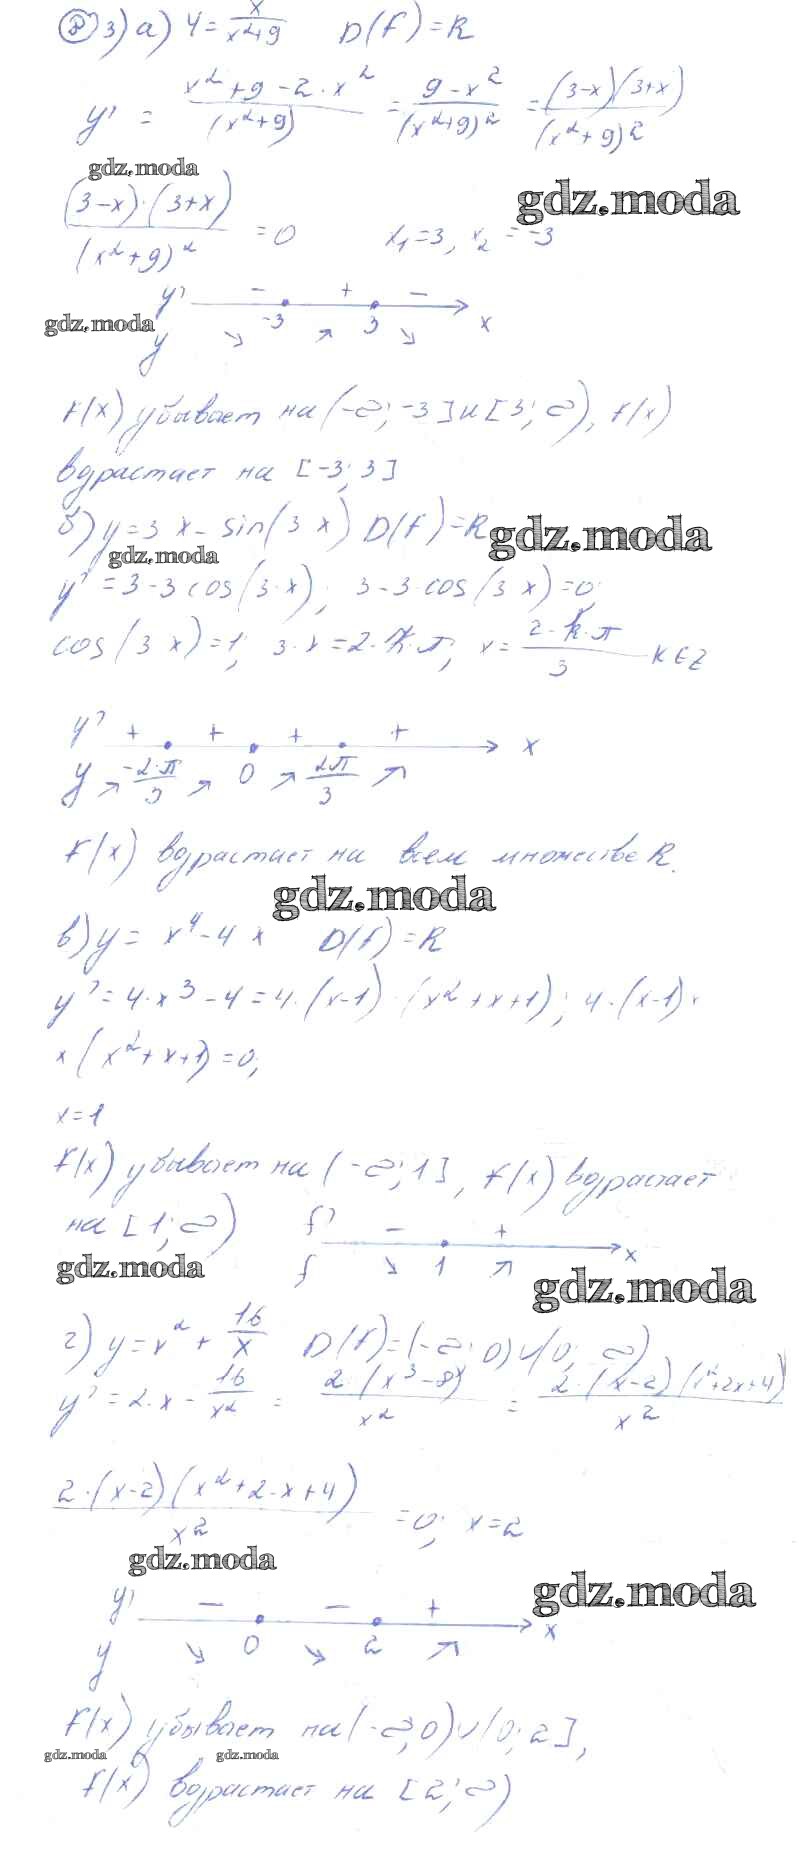 ⑧ 3) а) y = x/(x²+9) D(f)=R
y' = (x²+9-2·x²)/(x²+9) = (9-x²)/(x²+9)² = (3-x)(3+x)/(x²+9)²
gdz.moda
(3-x)·(3+x)/(x²+9)² = 0 x₁=3, x₂=-3
gdz.moda
y' - + - x
gdz.moda
y ↘ -3 ↗ 3 ↘
f(x) убывает на (-∞; -3] и [3; ∞), f(x)
вдрастает на [-3; 3]
б) y=3x-sin(3x) D(f)=R
gdz.moda
gdz.moda
y'=3-3cos(3·x); 3-3·cos(3x)=0;
cos(3x)=1; 3·x=2·k·π; x=2·k·π/3 k∈Z
y' + + + + x
y ↗ -2·π/3 ↗ 0 ↗ 2π/3 ↗
f(x) вдрастает на всем множестве R.
gdz.moda
в) y = x⁴-4x D(f)=R
y'=4·x³-4=4·(x-1)·(x²+x+1); 4·(x-1)×
×(x²+x+1)=0;
x=1
f(x) убывает на (-∞; 1], f(x) вдрастает
на [1; ∞) f' - + x
f ↘ 1 ↗
gdz.moda
gdz.moda
г) y=x²+16/x D(f)=(-∞; 0)∪(0; ∞)
y'=2·x-16/x² = 2·(x³-8)/x² = 2·(x-2)(x²+2x+4)/x²
2·(x-2)(x²+2·x+4)/x² = 0; x=2
gdz.moda
gdz.moda
y' - - + x
y ↘ 0 ↘ 2 ↗
f(x) убывает на (-∞; 0)∪(0; 2],
gdz.moda
gdz.moda
f(x) вдрастает на [2; ∞)